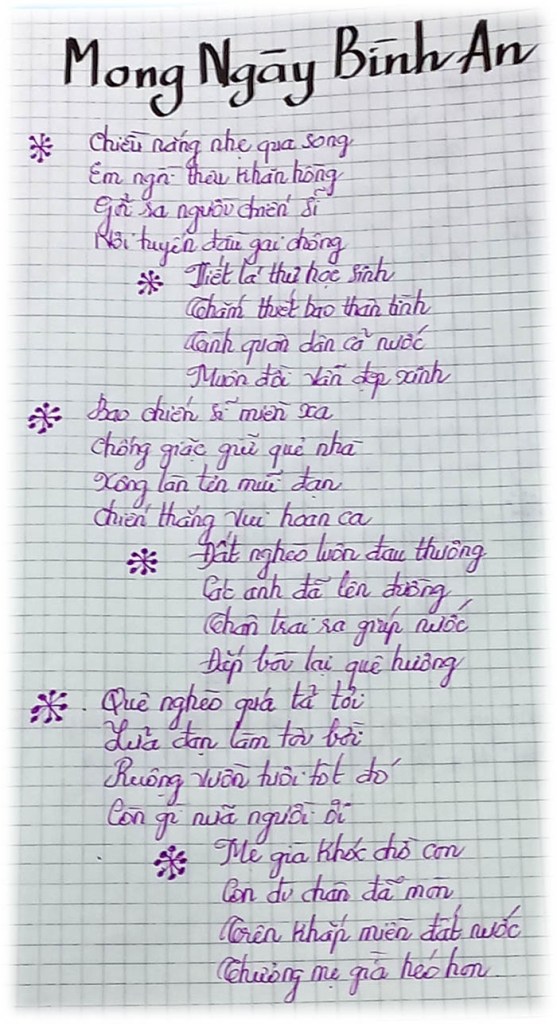 Mong Ngày Bình An
Chiều nắng nhẹ qua song
Em ngồi thêu khăn hồng
Gởi ra người chiến sĩ
Nơi tuyến đầu gai chông
Viết lá thư học sinh
Thắm thiết bao thân tình
Tình quân dân cả nước
Muôn đời vẫn đẹp xinh
Bao chiến sĩ miền xa
Chống giặc giữ quê nhà
Xông lằn tên mũi đạn
Chiến thắng vui hoan ca
Đất nghèo luôn đau thương
Các anh đã lên đường
Thân trai ra giúp nước
Đắp bồi lại quê hương
Quê nghèo quá tả tơi
Lửa đạn làm tơi bời
Ruộng vườn trôi tất đó
Còn gì nữa người ơi
Mẹ già khóc chờ con
Con đi chân đã mòn
Trên khắp miền đất nước
Thương mẹ già héo hon